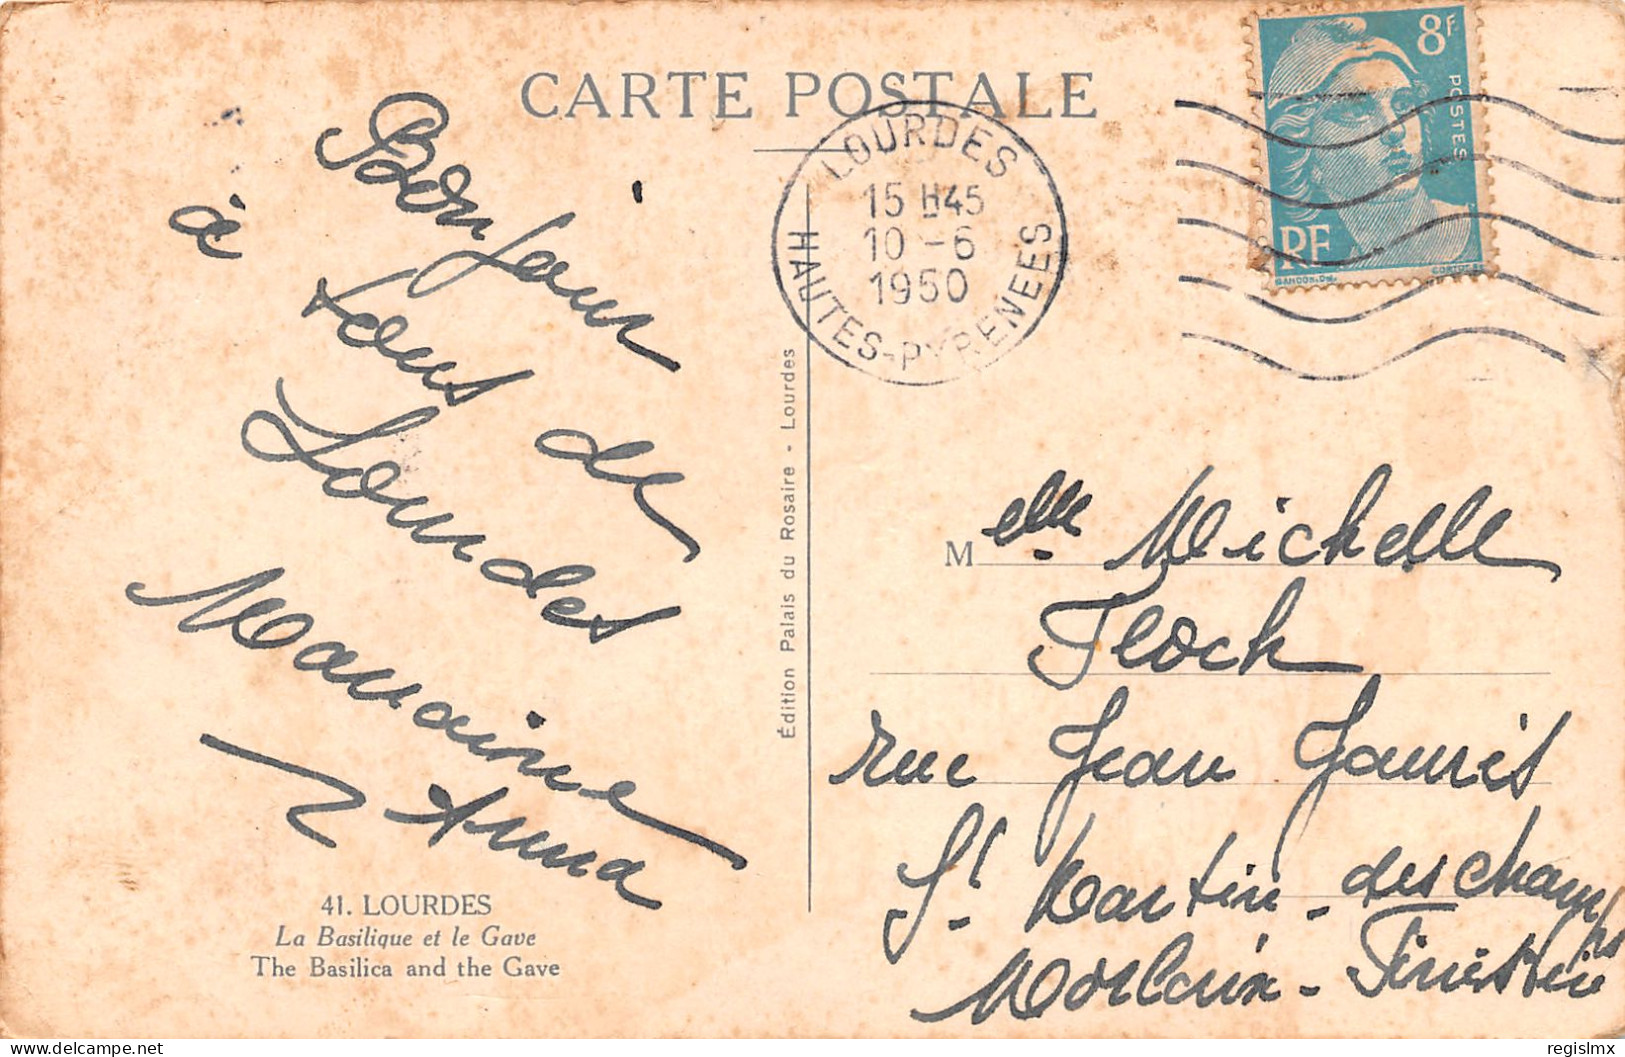 CARTE POSTALE
8F
POSTES
RF
GANDON.DEL.
LOURDES
15 H45
10 - 6
1950
HAUTES-PYRENEES
Bonjour
à tous de
Lourdes
Marraine
Anna
Édition Palais du Rosaire - Lourdes
Melle Michelle
Floch
rue Jean Jaurès
St Martin-des champs
Morlaix - Finistère
41. LOURDES
La Basilique et le Gave
The Basilica and the Gave
regislmx